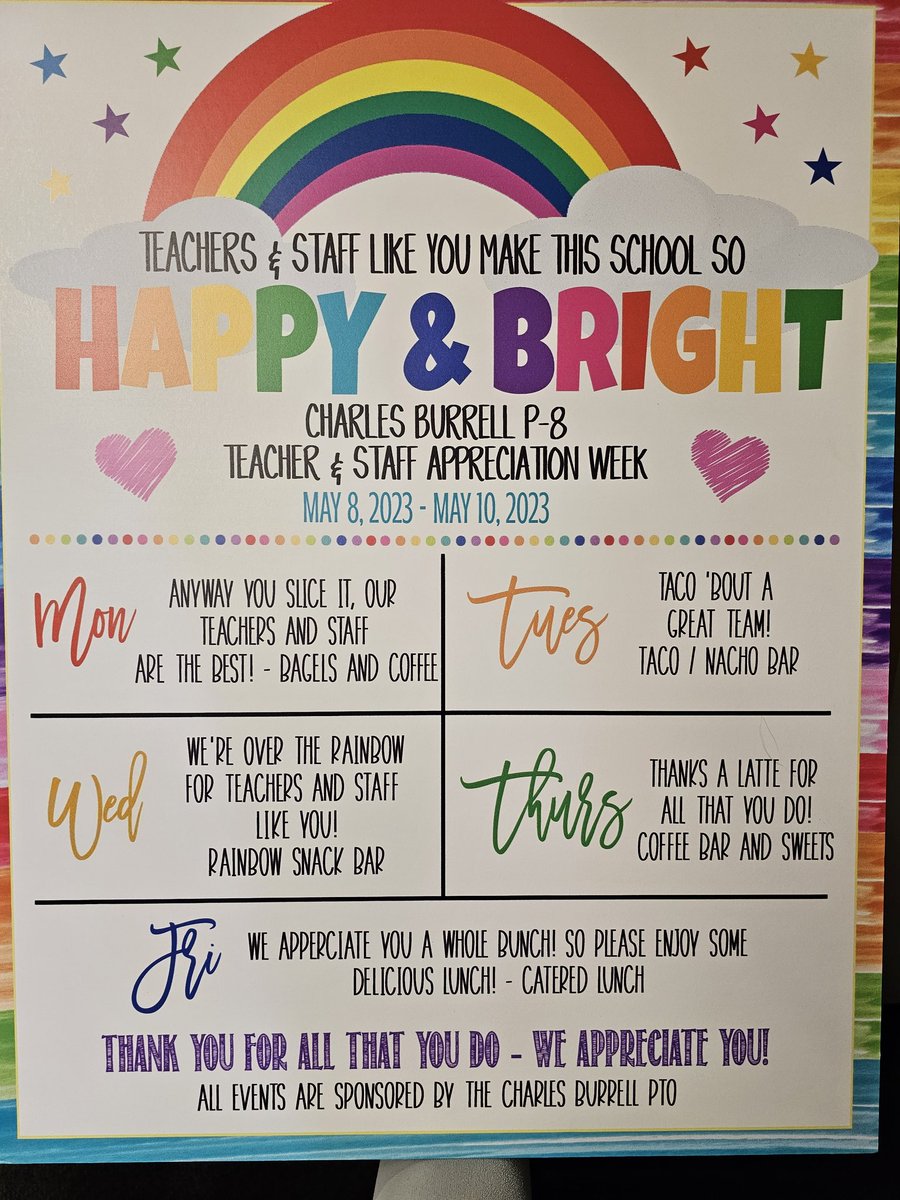 TEACHERS & STAFF LIKE YOU MAKE THIS SCHOOL SO
HAPPY & BRIGHT
CHARLES BURRELL P-8
TEACHER & STAFF APPRECIATION WEEK
MAY 8, 2023 - MAY 10, 2023
Mon
ANYWAY YOU SLICE IT, OUR
TEACHERS AND STAFF
ARE THE BEST! - BAGELS AND COFFEE
Tues
TACO 'BOUT A
GREAT TEAM!
TACO / NACHO BAR
Wed
WE'RE OVER THE RAINBOW
FOR TEACHERS AND STAFF
LIKE YOU!
RAINBOW SNACK BAR
Thurs
THANKS A LATTE FOR
ALL THAT YOU DO!
COFFEE BAR AND SWEETS
Fri
WE APPERCIATE YOU A WHOLE BUNCH! SO PLEASE ENJOY SOME
DELICIOUS LUNCH! - CATERED LUNCH
THANK YOU FOR ALL THAT YOU DO - WE APPRECIATE YOU!
ALL EVENTS ARE SPONSORED BY THE CHARLES BURRELL PTO